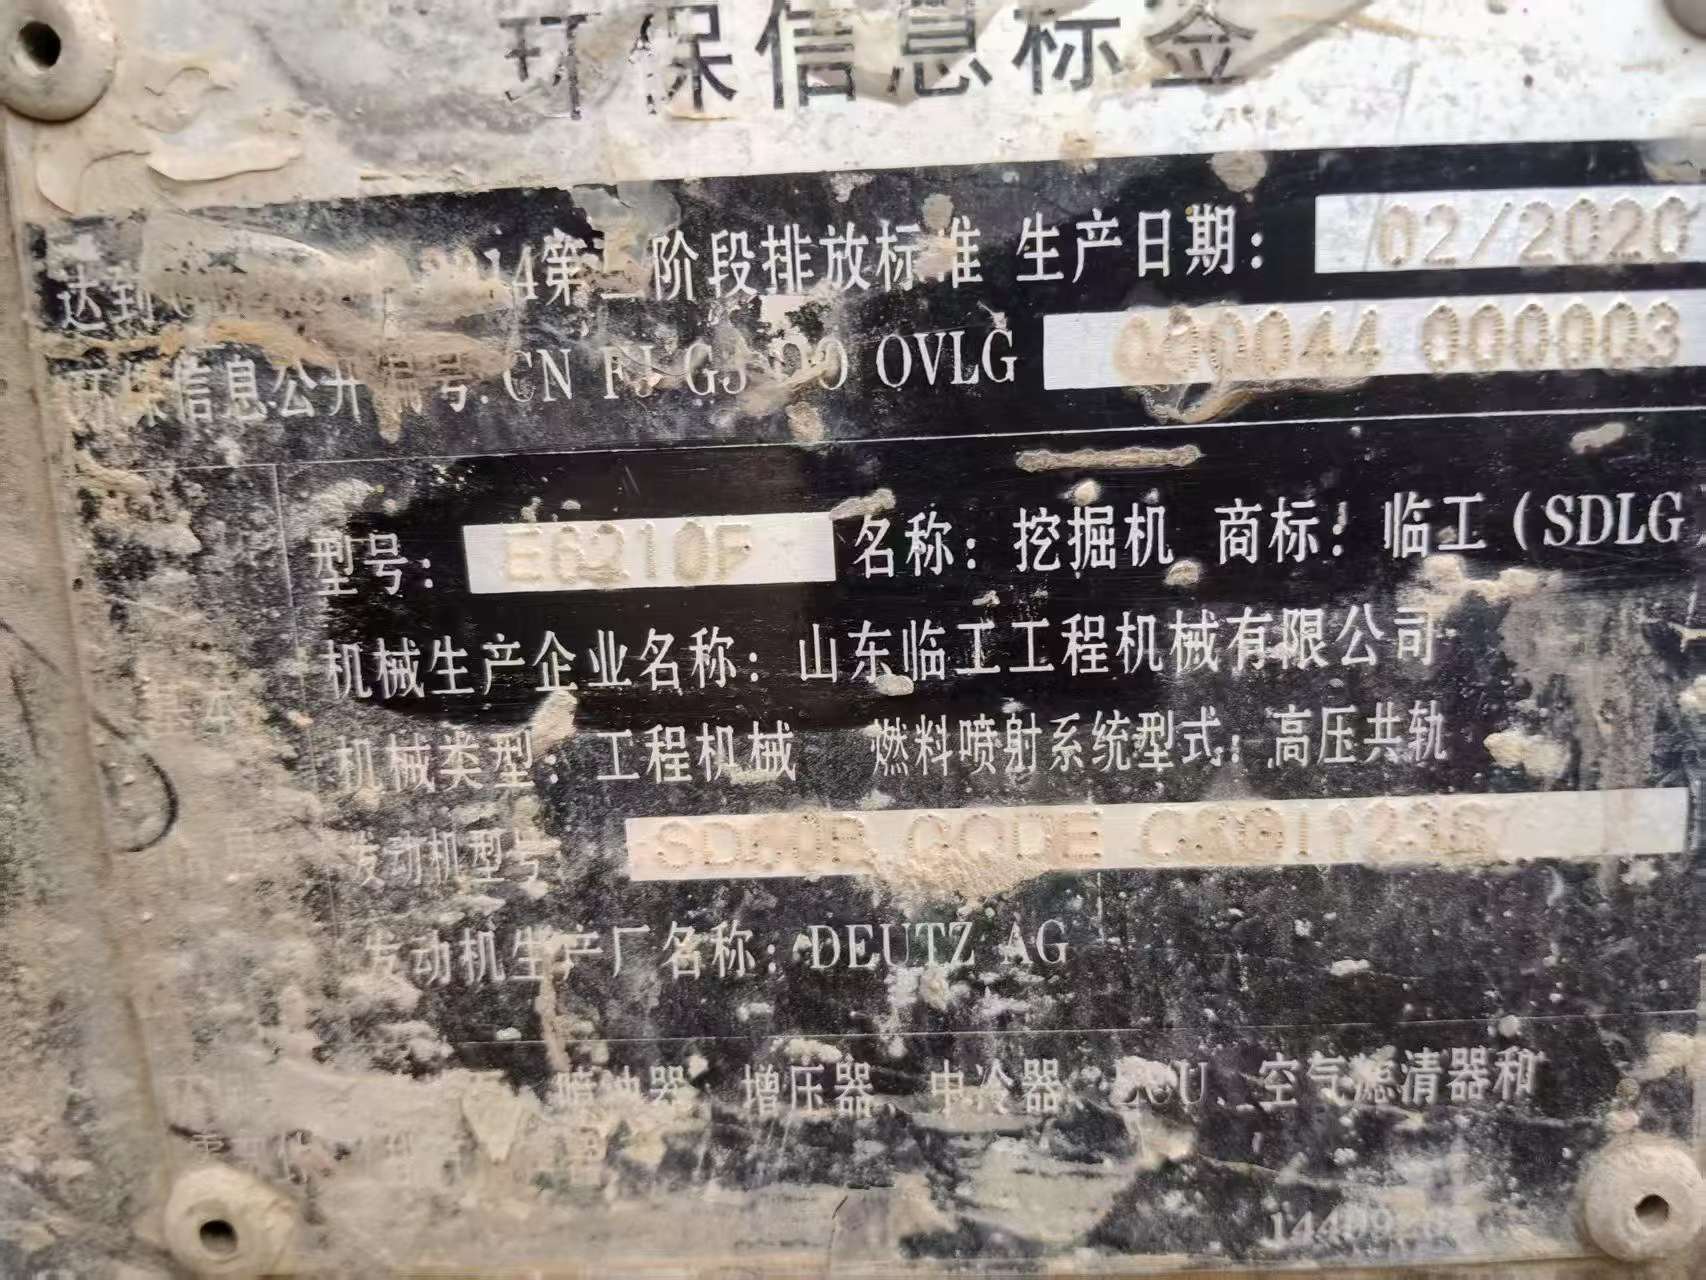 环保信息标签
达到 14第三阶段排放标准 生产日期: 02/2020
环保信息公开编号: CN FJ G3 00 0VLG 000044 000003
型号: E6210F 名称: 挖掘机 商标: 临工(SDLG
机械生产企业名称: 山东临工工程机械有限公司
机械类型: 工程机械 燃料喷射系统型式: 高压共轨
发动机型号 CODE
发动机生产厂名称: DEUTZ AG
喷油器、增压器、中冷器、ECU、空气滤清器和